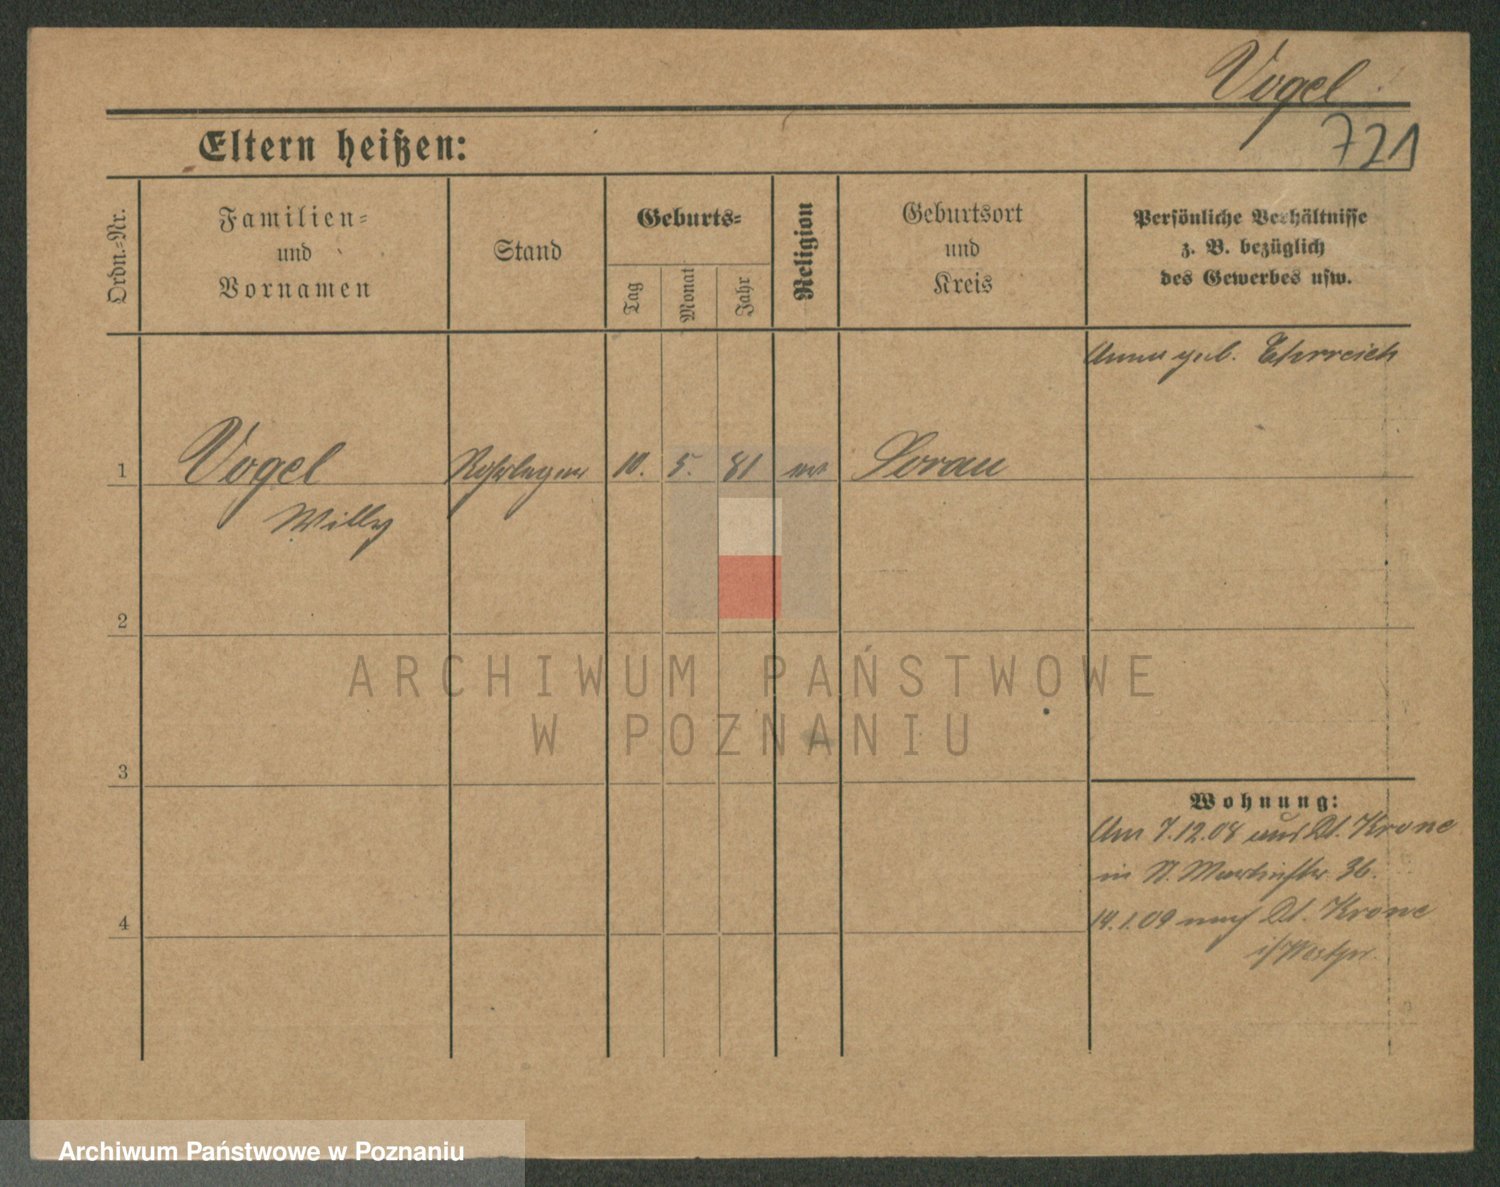 Vogel
721
Eltern heißen:
Ordn.-Nr.
Familien-
und
Vornamen
Stand
Geburts-
Tag
Monat
Jahr
Religion
Geburtsort
und
Kreis
Persönliche Verhältnisse
z. B. bezüglich
des Gewerbes usw.
Anna geb. Ehrreich
1
Vogel
Rohrleger
10.
5.
81
Sorau
Willy
2
ARCHIWUM PAŃSTWOWE
W POZNANIU
3
Wohnung:
Am 7.12.08 aus Dt. Krone
in St. Martinstr. 36.
14.1.09 nach Dt. Krone
i/Westpr.
4
Archiwum Państwowe w Poznaniu